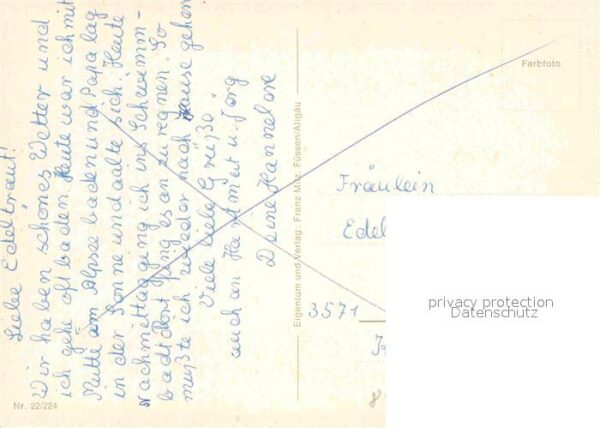 Liebe Edeltraut!
Wir haben schönes Wetter und
ich gehe oft baden. Heute war ich mit
Mutti am Alpsee baden und Papa lag
in der Sonne und aalte sich. Heute
Nachmittag ging ich ins Schwimm-
bad dort fing es an zu regnen. So
mußte ich wieder nach Hause gehen
Viele liebe Grüße
auch an Hartmut u. Jörg
Deine Hannelore
Nr. 22/224
Eigentum und Verlag: Franz Milz, Füssen/Allgäu
Farbfoto
Fräulein
Edel
3571
privacy protection
Datenschutz